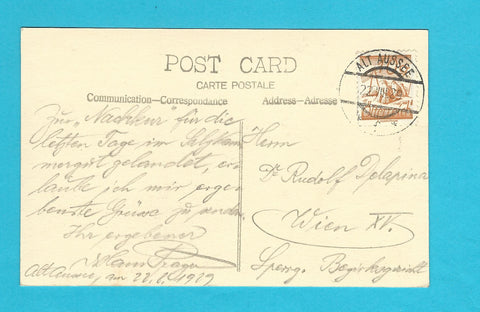 POST CARD
CARTE POSTALE
Communication—Correspondance
Address—Adresse
ALT AUSSEE
Zur „Nachkur" für die
letzten Tage im Salzkam
mergut gelandet, er
laube ich mir erge
benste Grüsse zu senden.
Ihr ergebener
Hans Prager
Alt Aussee, am 22.8.1929
Herrn
Dr Rudolf Delapina
Wien XV.
Bezirksgericht